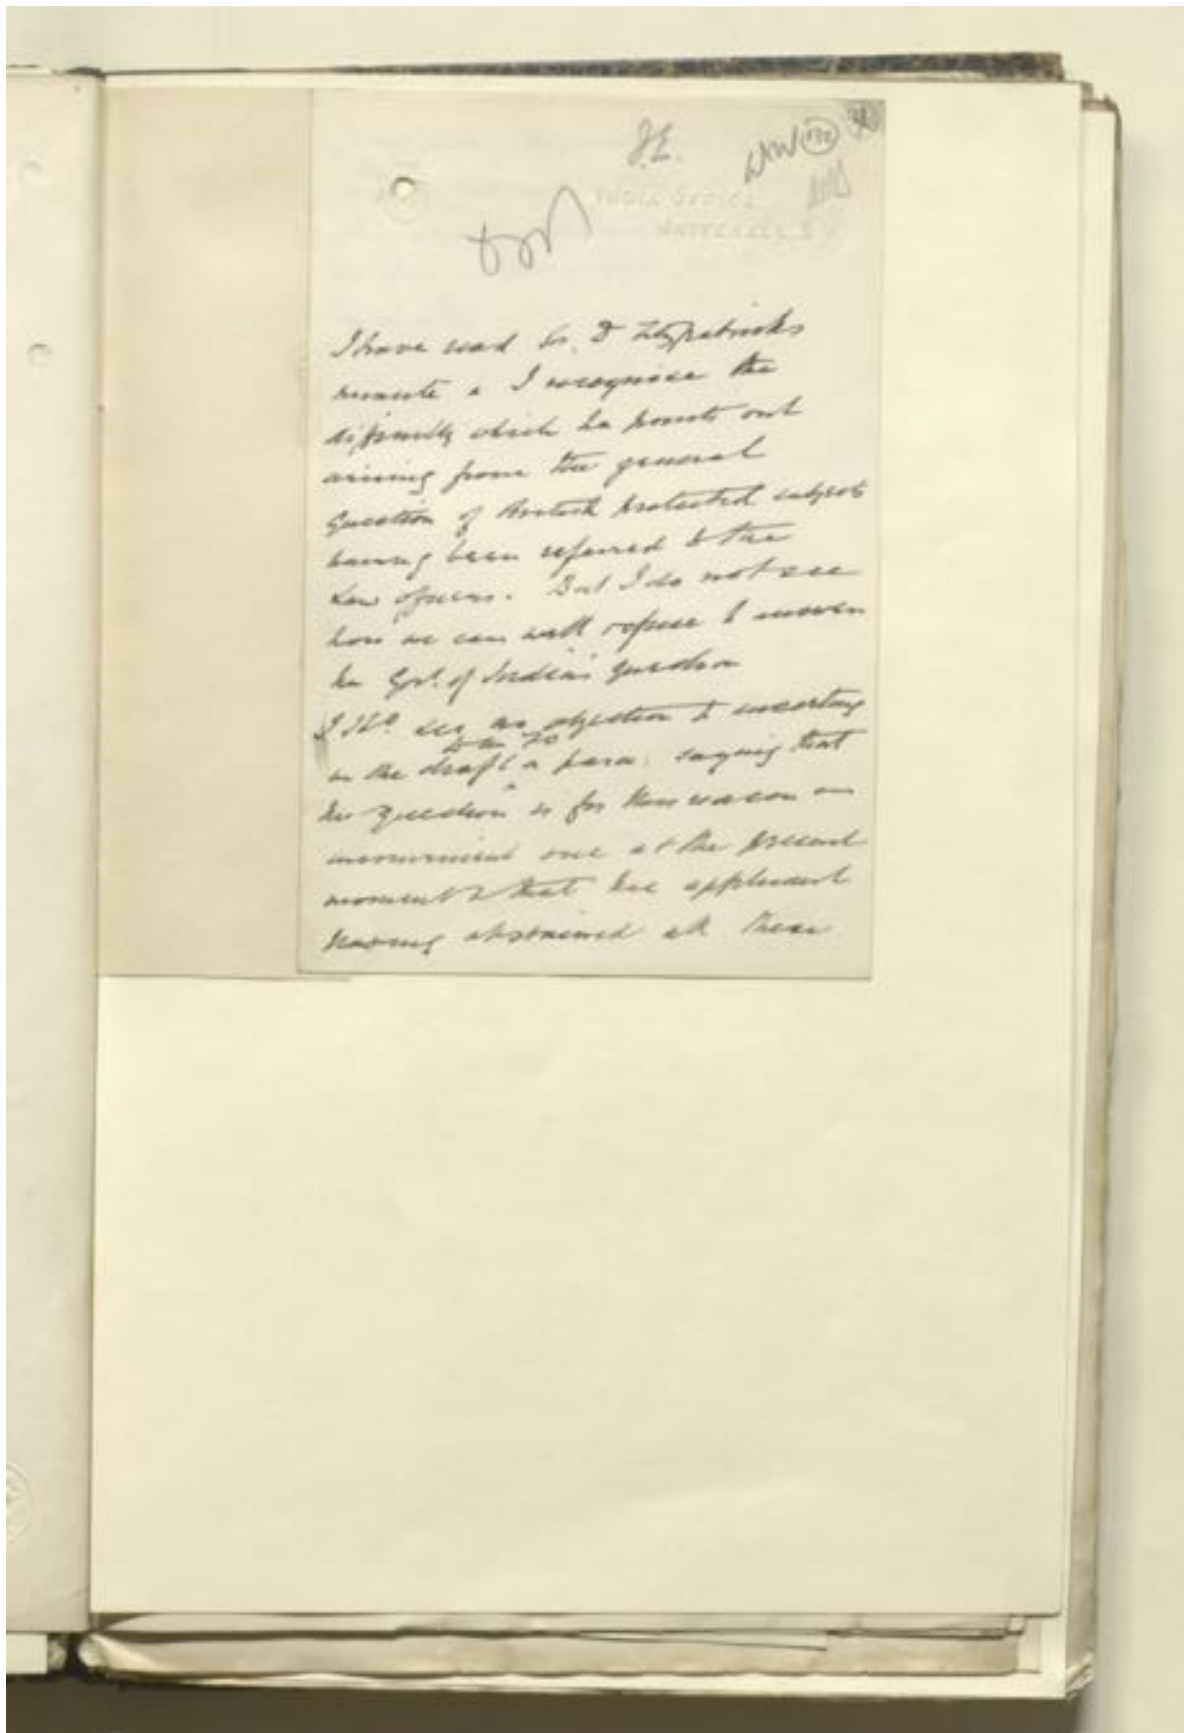 J.E.
132
INDIA OFFICE
WHITEHALL S.W.
I have read Sr. D Fitzpatricks
minute & I recognise the
difficulty which he points out
arising from the general
Question of British protected subjects
having been referred to the
Law Officers. But I do not see
how we can well refuse to answer
the Govt. of India's question
I shd. see no objection to inserting
to the FO
in the draft a para: saying that
the question is for this reason an
inconvenient one at the present
moment & that the applicant
having obtained all these